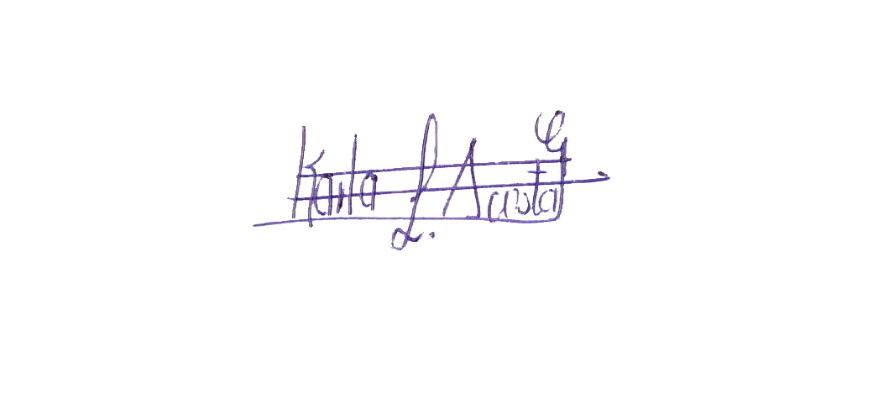 Karla L. Acosta G